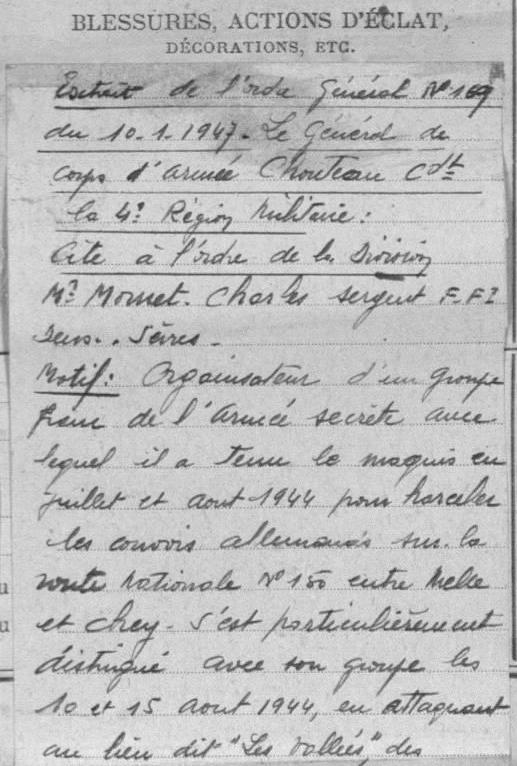 BLESSURES, ACTIONS D'ÉCLAT,
DÉCORATIONS, ETC.
Extrait de l'ordre Général N° 169
du 10-1-1947. Le Général de
corps d'armée Chouteau Cdt
la 4e Région Militaire:
Cite à l'ordre de la Division
Mr Mornet. Charles sergent F.F.I
Deux. Sèvres.
Motif: Organisateur d'un groupe
franc de l'Armée secrète avec
lequel il a tenu le maquis en
juillet et aout 1944 pour harceler
les convois allemands sur la
route Nationale N° 150 entre Melle
et Chey. S'est particulièrement
distingué avec son groupe les
10 et 15 aout 1944, en attaquant
au lieu dit "Les Vallées", des